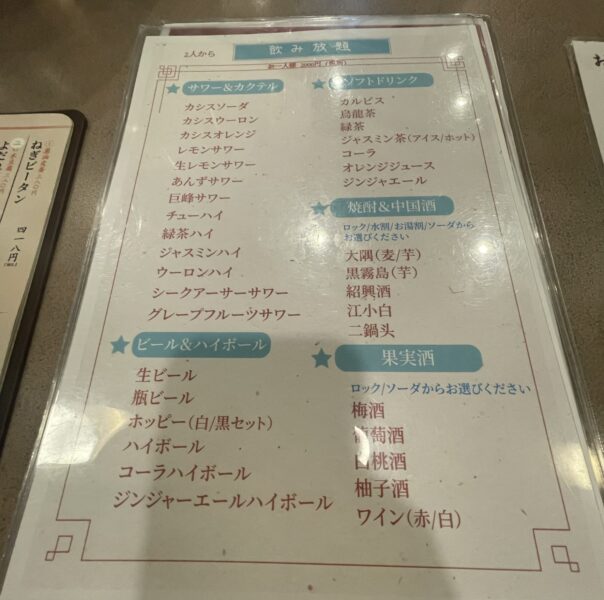 飲み放題
2人から
お一人様 2000円(税別)
サワー&カクテル
カシスソーダ
カシスウーロン
カシスオレンジ
レモンサワー
生レモンサワー
あんずサワー
巨峰サワー
チューハイ
緑茶ハイ
ジャスミンハイ
ウーロンハイ
シークアーサーサワー
グレープフルーツサワー
ビール&ハイボール
生ビール
瓶ビール
ホッピー(白/黒セット)
ハイボール
コーラハイボール
ジンジャーエールハイボール
ソフトドリンク
カルピス
烏龍茶
緑茶
ジャスミン茶(アイス/ホット)
コーラ
オレンジジュース
ジンジャエール
焼酎&中国酒
ロック/水割/お湯割/ソーダから
お選びください
大隅(麦/芋)
黒霧島(芋)
紹興酒
江小白
二鍋头
果実酒
ロック/ソーダからお選びください
梅酒
葡萄酒
白桃酒
柚子酒
ワイン(赤/白)
ねぎピータン
四一八円